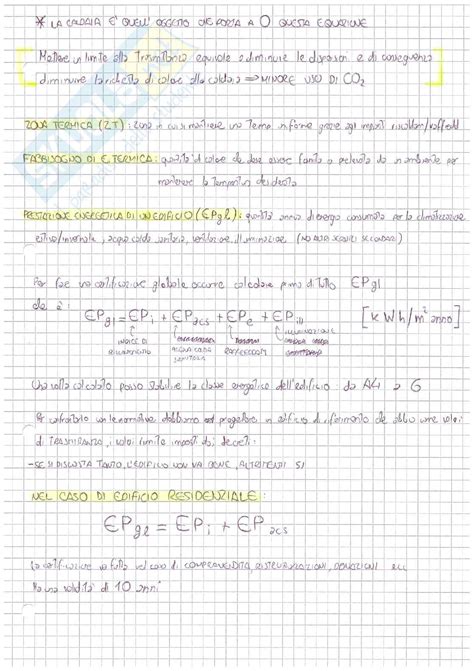 * LA CALDAIA E' QUELL' OGGETTO CHE PORTA A O QUESTA EQUAZIONE
Mettere un limite alla Trasmittanza equivale a diminuire le dispersioni e di conseguenza
diminuire la richiesta di calore alla caldaia ⇒ MINORE USO DI CO2
ZONA TERMICA (ZT): zona in cui si mantiene una Temp uniforme grazie agli impianti riscaldam/raffredd
FABBISOGNO DI E. TERMICA: quantità di calore che deve essere fornito o prelevato da un ambiente per
mantenere la temperatura desiderata
PRESTAZIONE ENERGETICA DI UN EDIFICIO (EPgl): quantità annua di energia consumata per la climatizzazione
estiva/invernale, acqua calda sanitaria, ventilazione, illuminazione
Per fare una certificazione globale occorre calcolare prima di tutto EPgl
che è:
EPgl = EPi + EPacs + EPe + EPill [kWh/m² anno]
INDICE DI RISCALDAMENTO
ACQUA CALDA SANITARIA
RAFFREDDAM
ILLUMINAZIONE
Una volta calcolato posso stabilire la classe energetica dell'edificio da A4 a G
Per confrontarlo un le normative dobbiamo progettare un edificio di riferimento che abbia come valori
di TRASMITTANZA, i valori limite imposti dai decreti:
-SE SI DISCOSTA TANTO, L'EDIFICIO NON VA BENE, ALTRIMENTI SI
NEL CASO DI EDIFICIO RESIDENZIALE:
EPgl = EPi + EPacs
La certificazione va fatta nel caso di COMPRAVENDITA, RISTRUTTURAZIONI, DONAZIONI ecc
Ha una validità di 10 anni